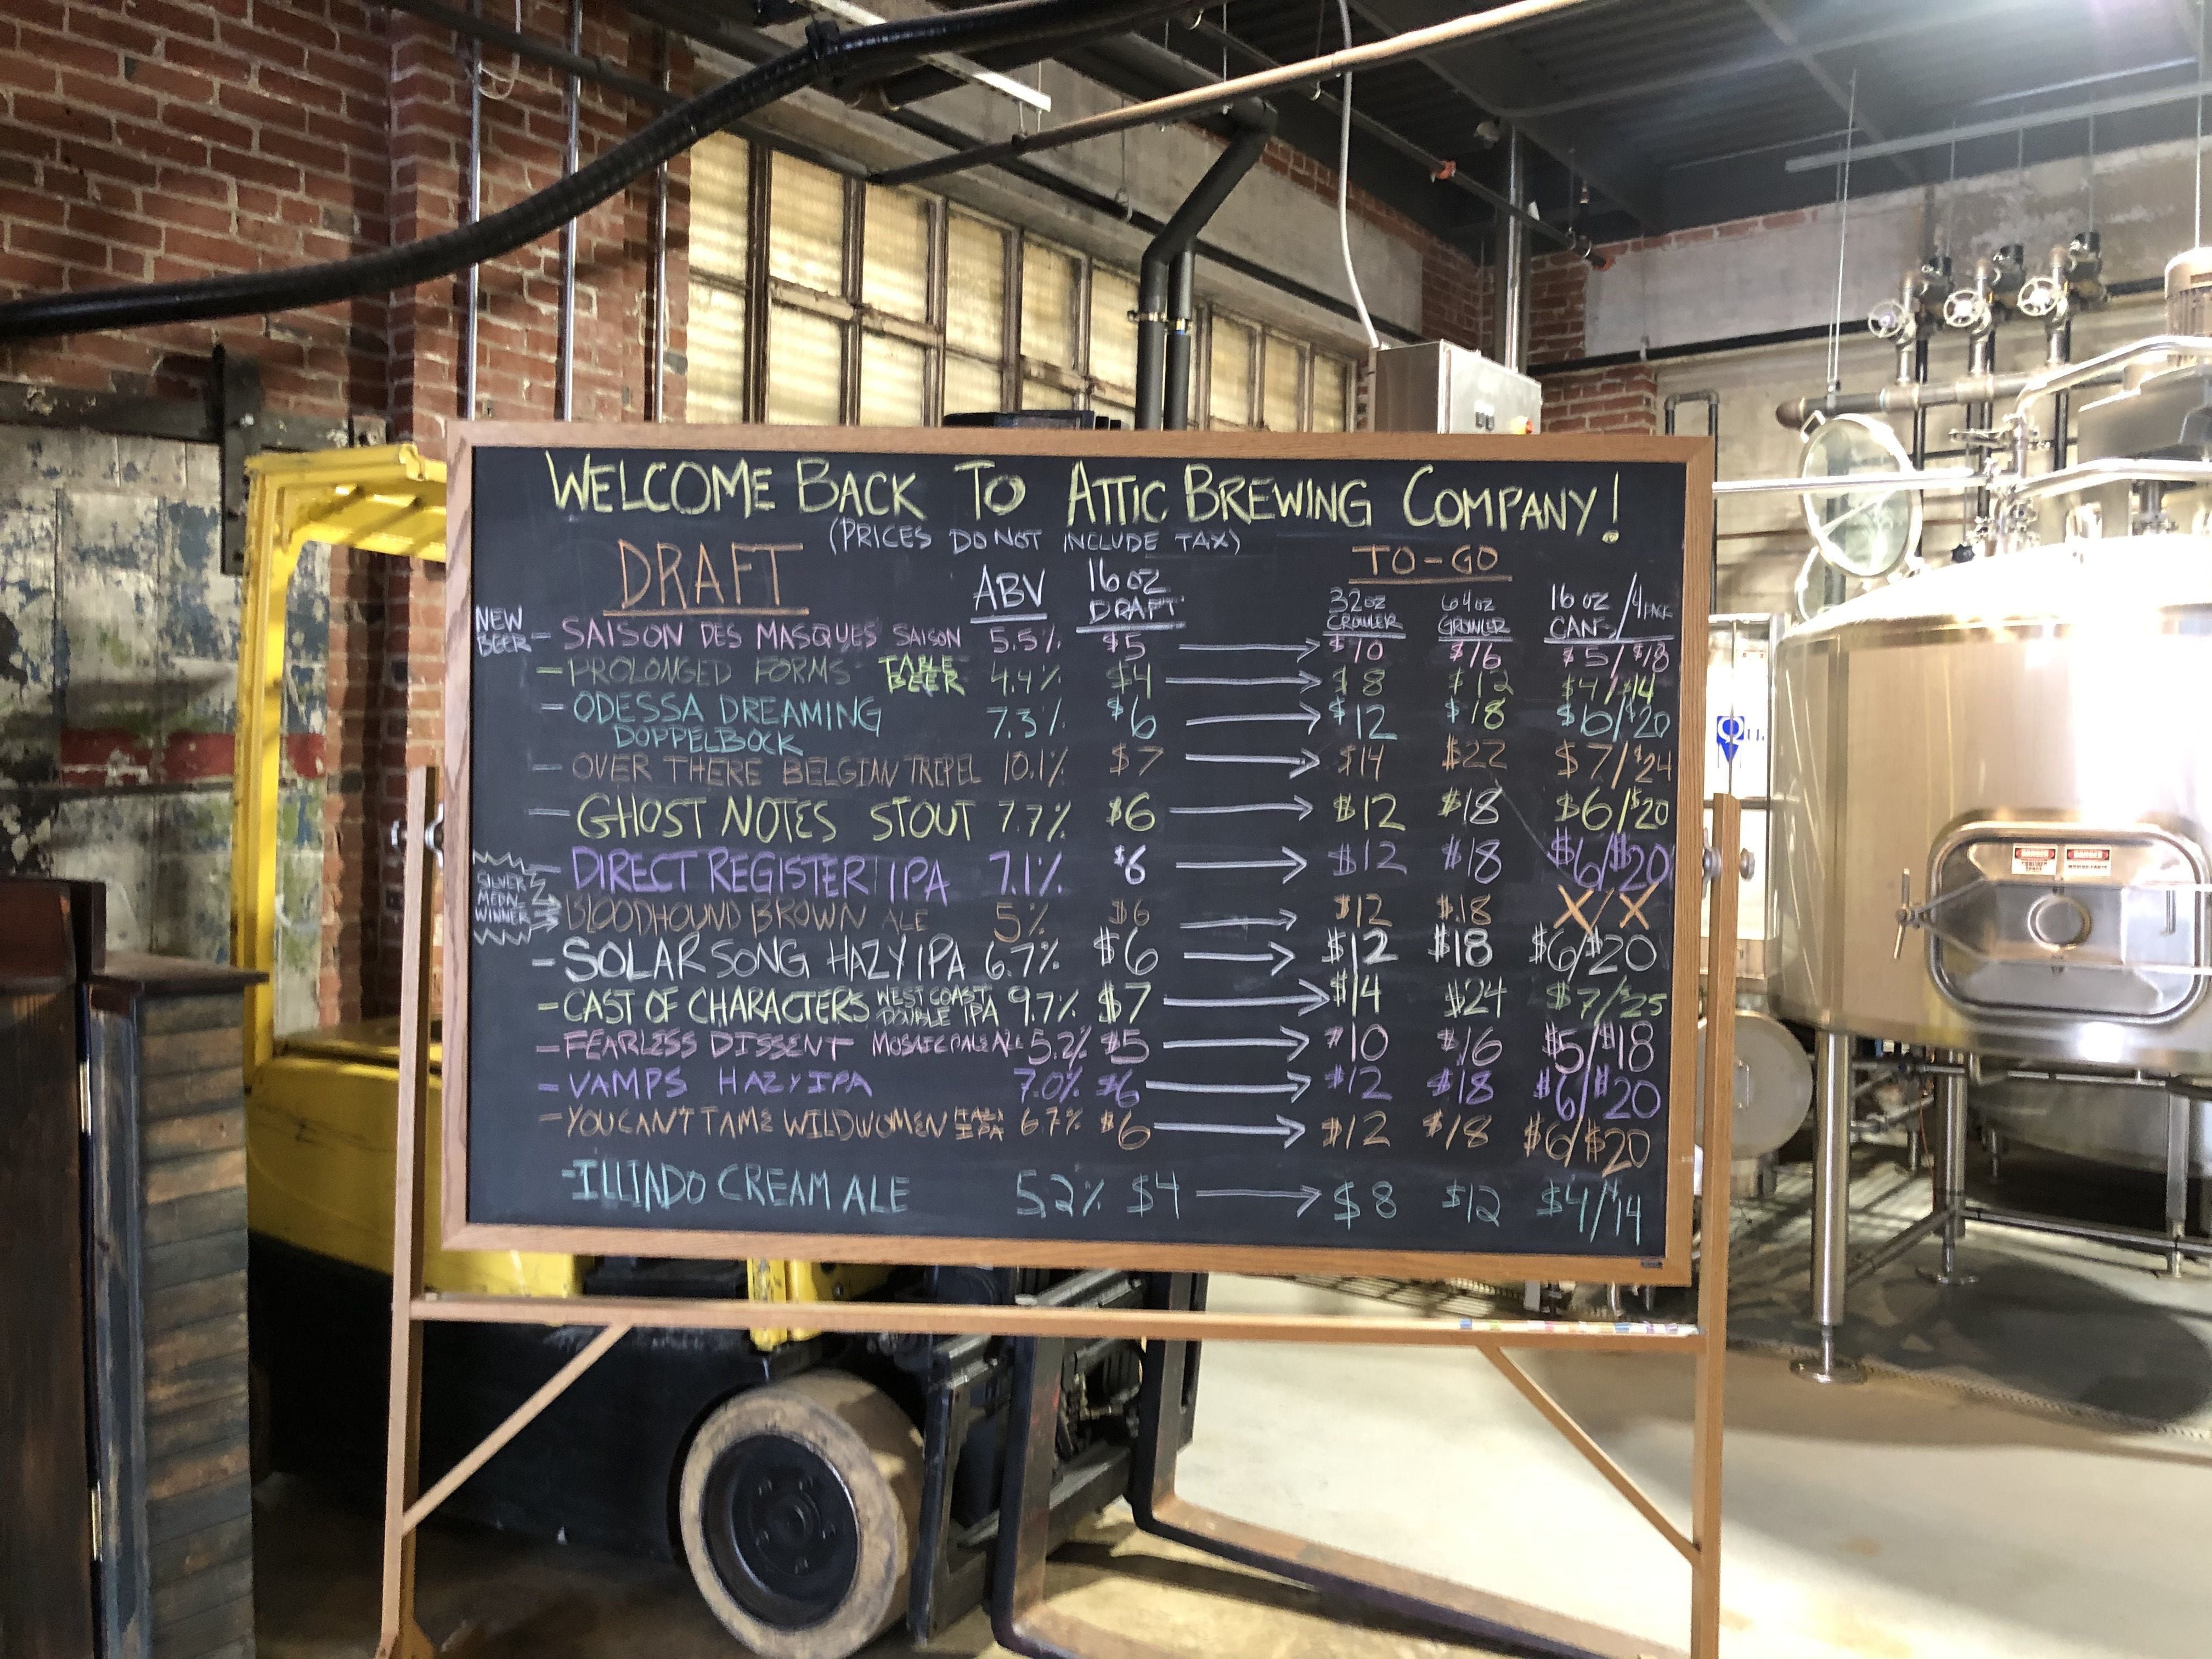 WELCOME BACK TO ATTIC BREWING COMPANY!
(PRICES DO NOT INCLUDE TAX)
DRAFT ABV 16 OZ DRAFT TO-GO
32oz CROWLER 64oz GROWLER 16 OZ CANS / 4 PACK
NEW BEER - SAISON DES MASQUES SAISON 5.5% $5 $10 $16 $5/$18
- PROLONGED FORMS TABLE BEER 4.4% $4 $8 $12 $4/$14
- ODESSA DREAMING DOPPELBOCK 7.3% $6 $12 $18 $6/$20
- OVER THERE BELGIAN TRIPEL 10.1% $7 $14 $22 $7/$24
- GHOST NOTES STOUT 7.7% $6 $12 $18 $6/$20
- DIRECT REGISTER IPA 7.1% $6 $12 $18 $6/$20
SILVER MEDAL WINNER BLOODHOUND BROWN ALE 5% $6 $12 $18 X/X
- SOLAR SONG HAZY IPA 6.7% $6 $12 $18 $6/$20
- CAST OF CHARACTERS WEST COAST DOUBLE IPA 9.7% $7 $14 $24 $7/$25
- FEARLESS DISSENT MOSAIC PALE ALE 5.2% $5 $10 $16 $5/$18
- VAMPS HAZY IPA 7.0% $6 $12 $18 $6/$20
- YOU CAN'T TAME WILD WOMEN IPA 6.7% $6 $12 $18 $6/$20
- ILLINDO CREAM ALE 5.2% $4 $8 $12 $4/$14
DANGER DANGER